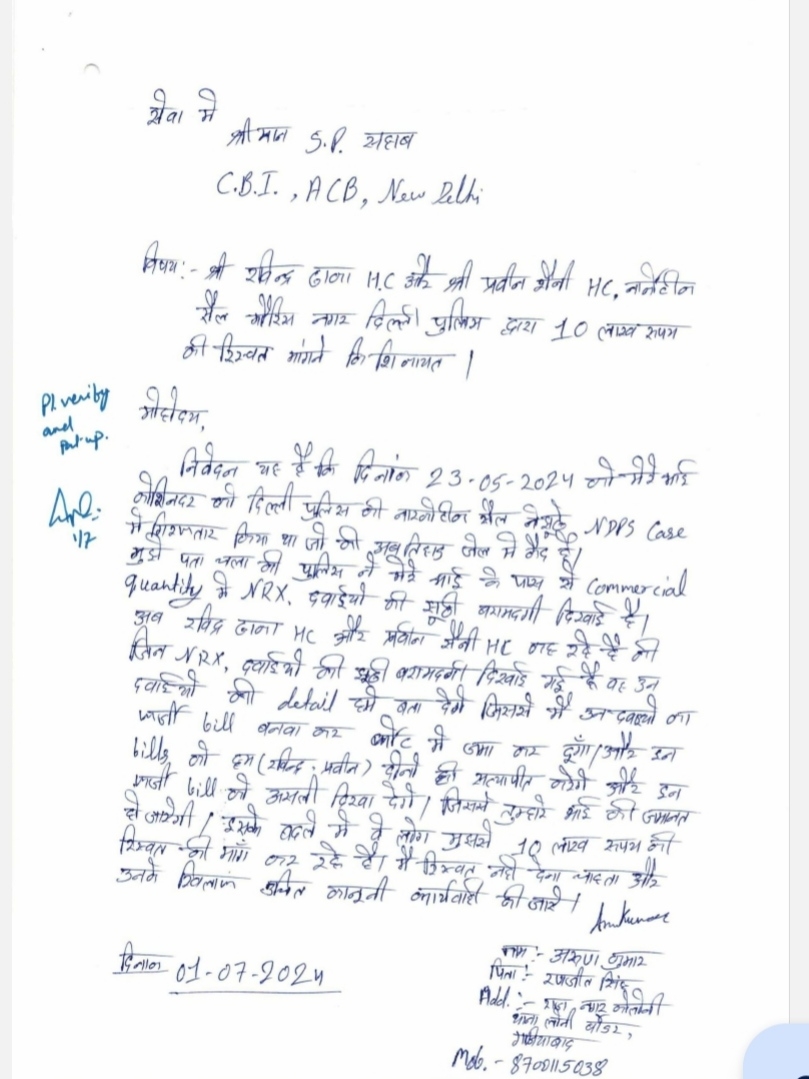 सेवा मे
श्रीमान S.P. सहाब
C.B.I., ACB, New Delhi
विषय:- श्री रविन्द्र ढाका H.C और श्री प्रवीन सैनी HC, नार्कोटीक
सैल मौरिस नगर दिल्ली पुलिस द्वारा 10 लाख रूपय
की रिश्वत मांगने कि शिकायत |
Pl. verify
and
put-up.
1/7
मोहोदय,
निवेदन यह है कि दिनांक 23-05-2024 को मेरे भाई
को दिल्ली पुलिस की नारकोटीक सैल ने झूठे NDPS Case
मे गिरफ्तार किया था जो की अब तिहाड़ जेल मे कैद है।
मुझे पता चला की पुलिस ने मेरे भाई के पास से Commercial
quantity मे NRX. दवाईयो की झूठी बरामदगी दिखाई है।
अब रविन्द्र ढाका HC और प्रवीन सैनी HC कह रहे है की
जिन NRX. दवाईयो की झूठी बरामदगी दिखाई गई है वह उन
दवाईयो की detail हमे बता देगे जिससे मै उन दवाईयो का
फर्जी bill बनवा कर कोर्ट मे जमा कर दूँगा। और इन
bills को हम (रविन्द्र, प्रवीन) दोनो ही सत्यापीत करेगे और इन
फर्जी bill को असली दिखा देगे। जिससे तुम्हारे भाई की जमानत
हो जायेगी। इसके बदले मे वे लोग मुझसे 10 लाख रूपय की
रिश्वत की माँग कर रहे है। मै रिश्वत नही देना चाहता और
उनके खिलाफ उचित कानूनी कार्यवाही की जाये।
दिनांक 01-07-2024
नाम:- अरूण कुमार
पिता:- रणजीत सिंह
Add.:- नगर कोलोनी
थाना लोनी बोर्डर,
गाजियाबाद
Mob. - 8700115038